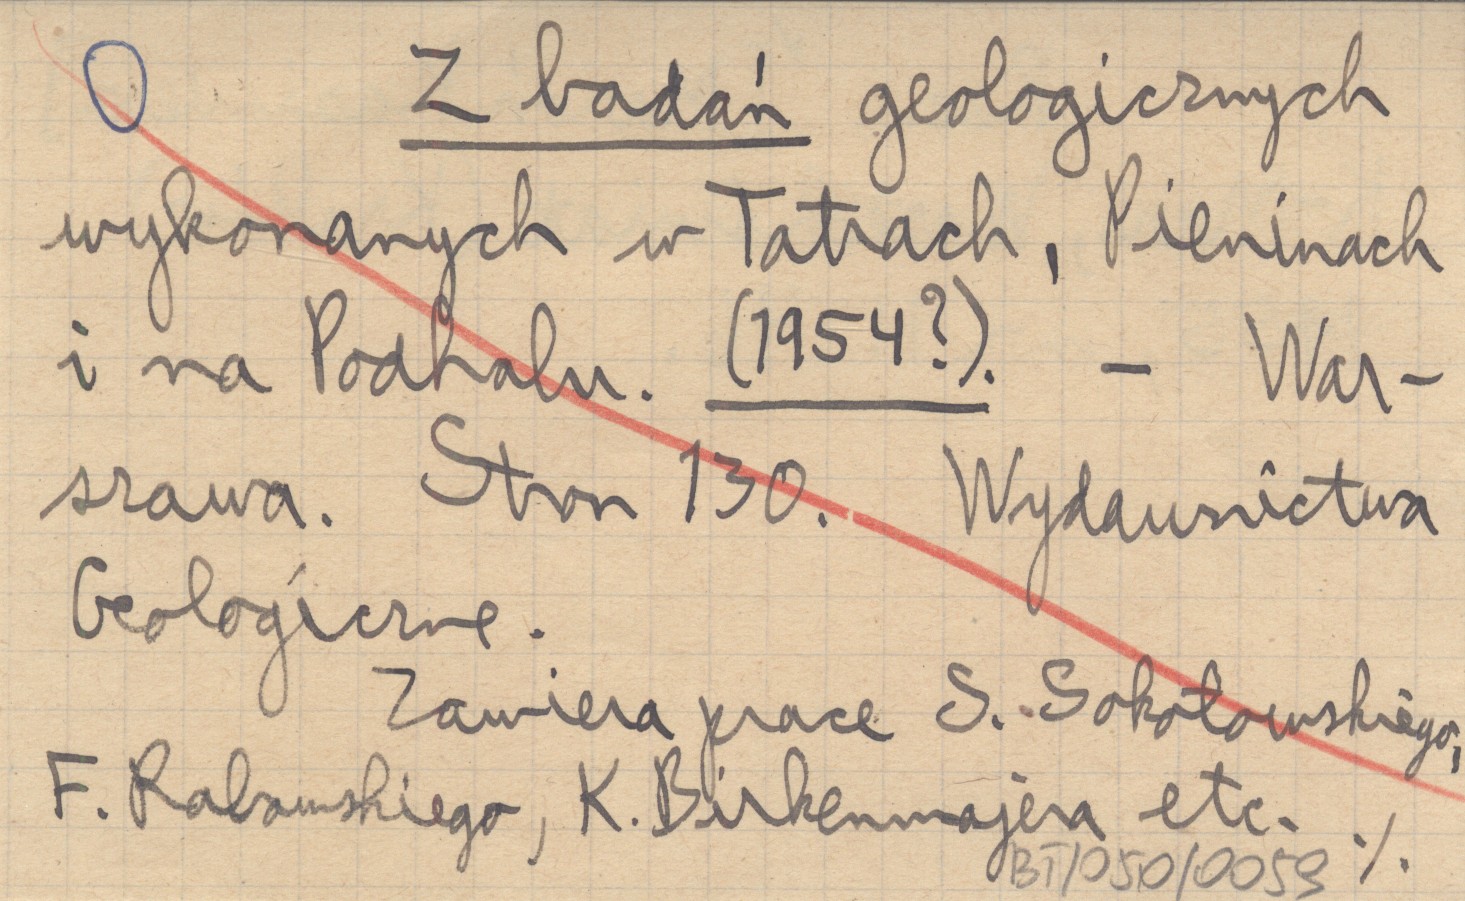 Z badań geologicznych
wykonanych w Tatrach, Pieninach
i na Podhalu. (1954?). - War-
szawa. Stron 130. Wydawnictwa
Geologiczne.
Zawiera prace S. Sokołowskiego,
F. Rabowskiego, K. Birkenmajera etc. ./.
BT/050/0059